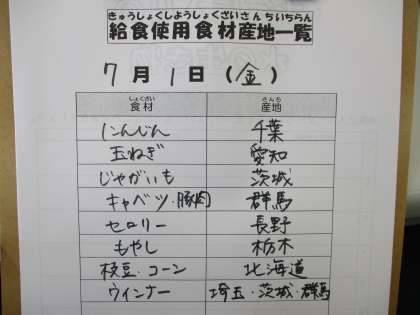 きゅうしょくしようしょくざいさんちいちらん
給食使用食材産地一覧
7月1日(金)
しょくざい さんち
食材 産地
にんじん 千葉
玉ねぎ 愛知
じゃがいも 茨城
キャベツ・豚肉 群馬
セロリー 長野
もやし 栃木
枝豆・コーン 北海道
ウインナー 埼玉・茨城・群馬